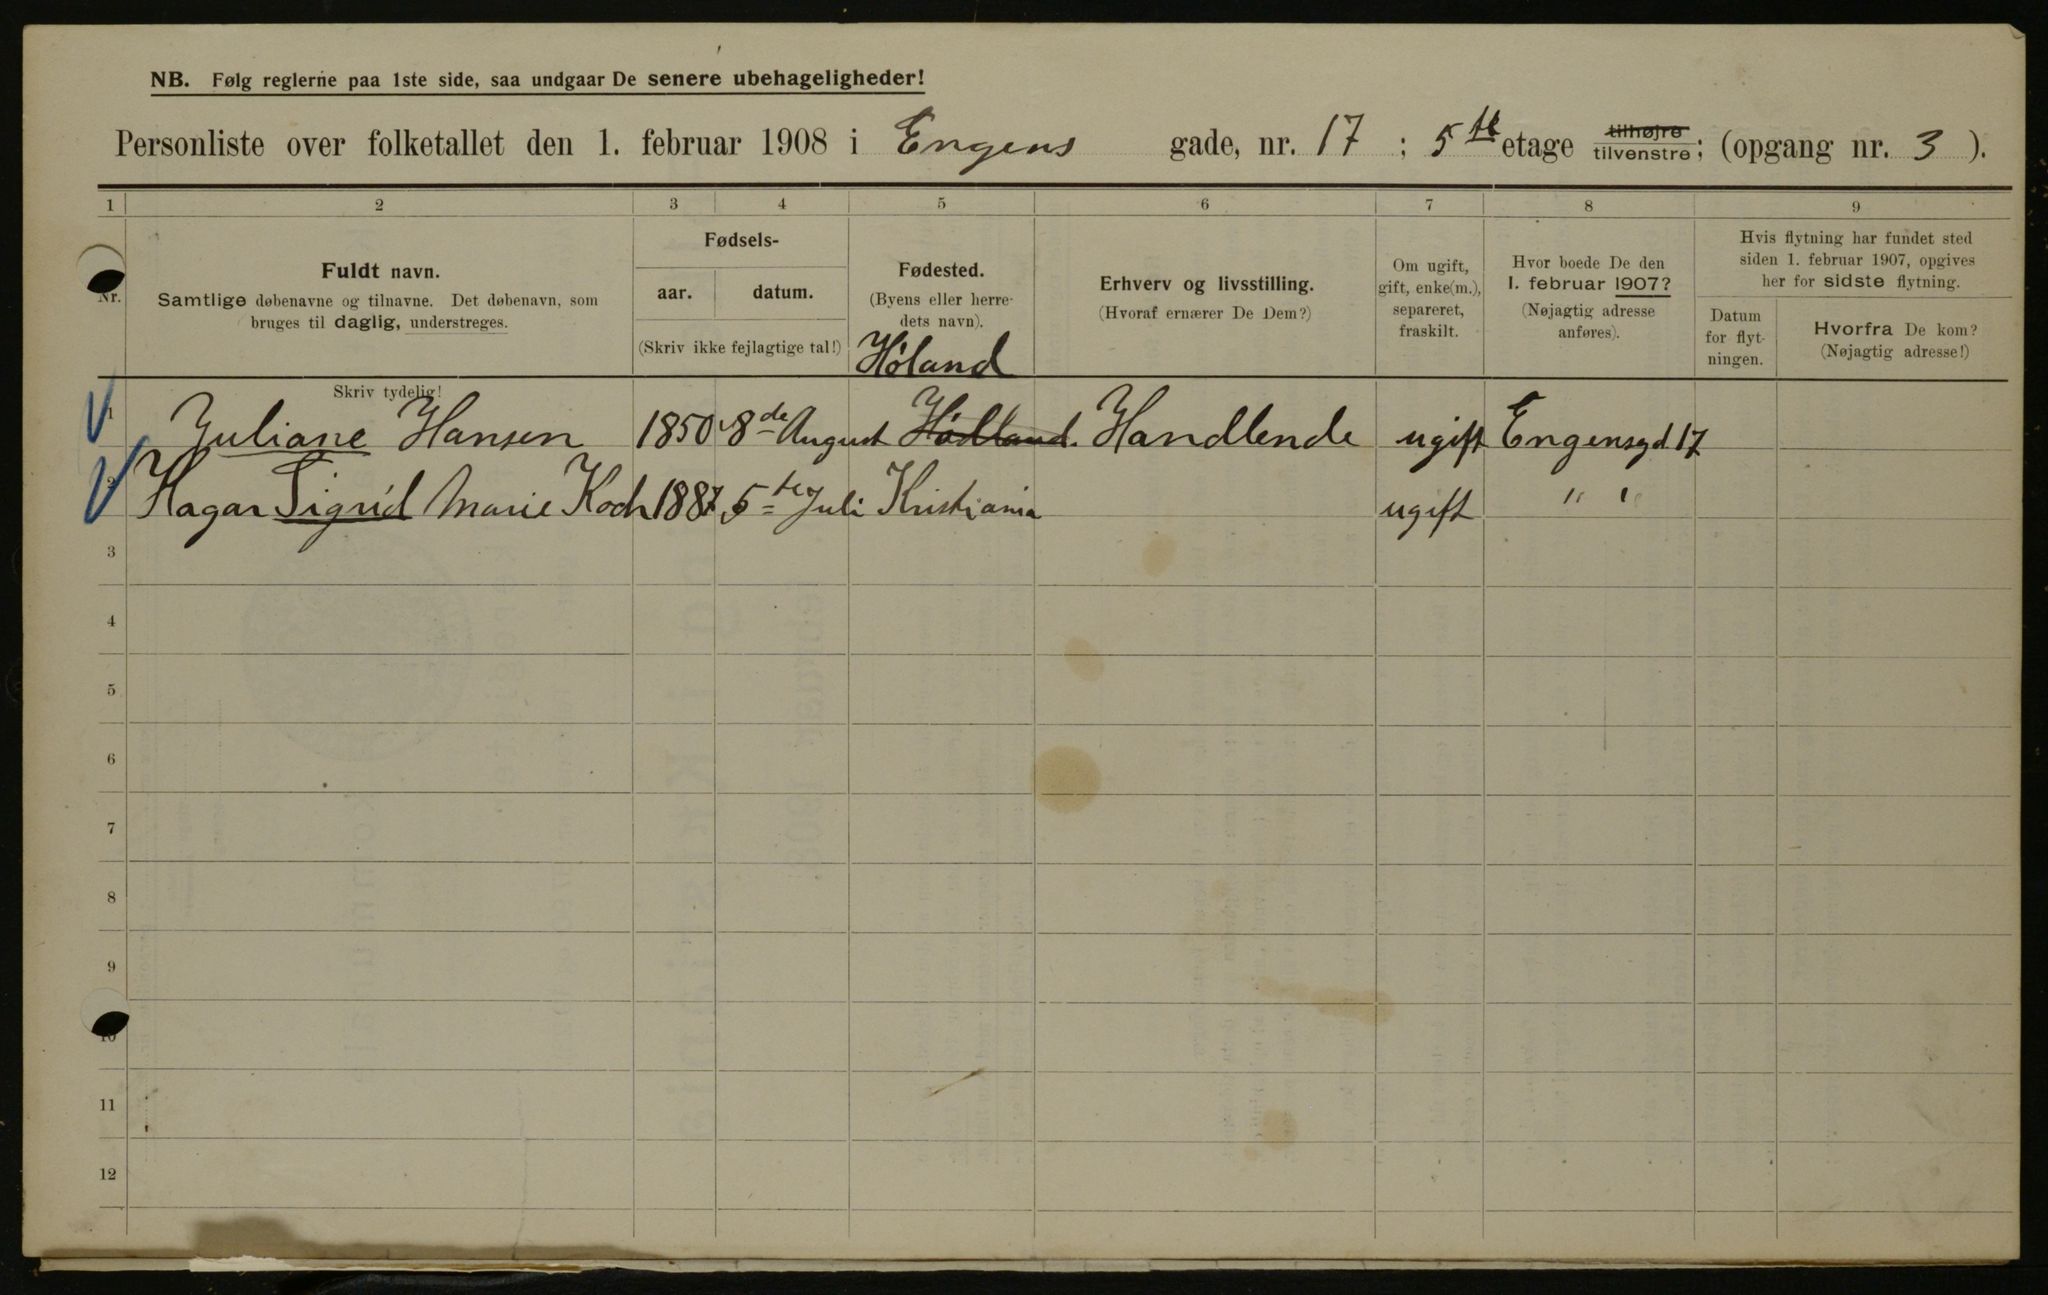 NB. Følg reglerne paa 1ste side, saa undgaar De senere ubehageligheder!
Personliste over folketallet den 1. februar 1908 i Engens gade, nr. 17 ; 5te etage tilhøjre tilvenstre; (opgang nr. 3 ).
1 2 3 4 5 6 7 8 9
Nr.
Fuldt navn.
Samtlige døbenavne og tilnavne. Det døbenavn, som
bruges til daglig, understreges.
Fødsels-
aar. datum.
(Skriv ikke fejlagtige tal!)
Fødested.
(Byens eller herre-
dets navn).
Erhverv og livsstilling.
(Hvoraf ernærer De Dem?)
Om ugift,
gift, enke(m.),
separeret,
fraskilt.
Hvor boede De den
1. februar 1907?
(Nøjagtig adresse
anføres).
Hvis flytning har fundet sted
siden 1. februar 1907, opgives
her for sidste flytning.
Datum
for flyt-
ningen.
Hvorfra De kom?
(Nøjagtig adresse!)
Høland
Skriv tydelig!
1 Juliane Hansen 1850 8de August Hødland. Handlende ugift Engensgd 17
2 Hagar Sigrid Marie Koch 1887 5te Juli Kristiania ugift " "
3
4
5
6
7
8
9
10
11
12